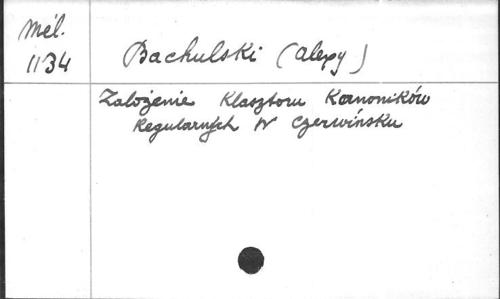 Mél.
1134
Bachulski (Alexy)
Założenie Klasztoru Kanoników
Regularnych W Czerwińsku